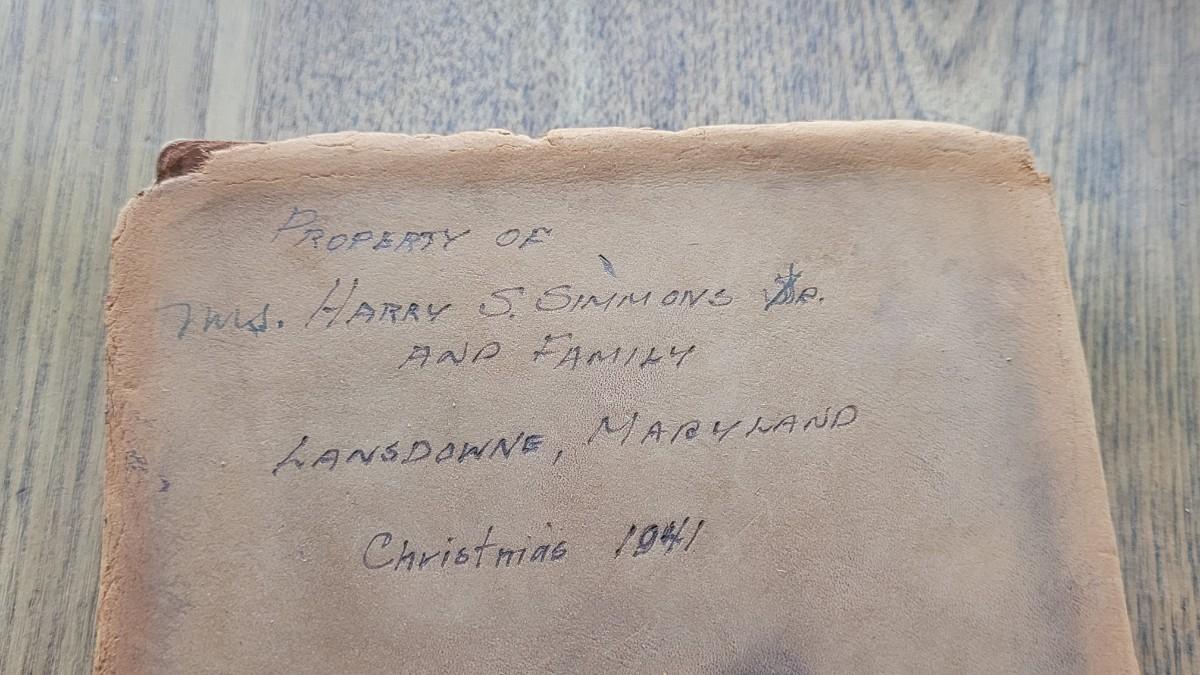 PROPERTY OF
Mrs. HARRY S. SIMMONS Sr.
AND FAMILY
LANSDOWNE, MARYLAND
Christmas 1941